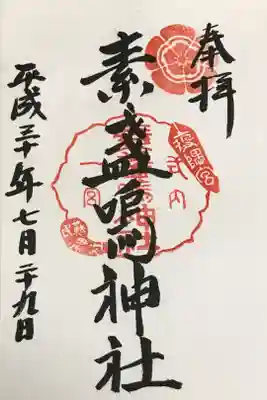 奉拝
素盞嗚神社
平成三十年七月二十九日
式内